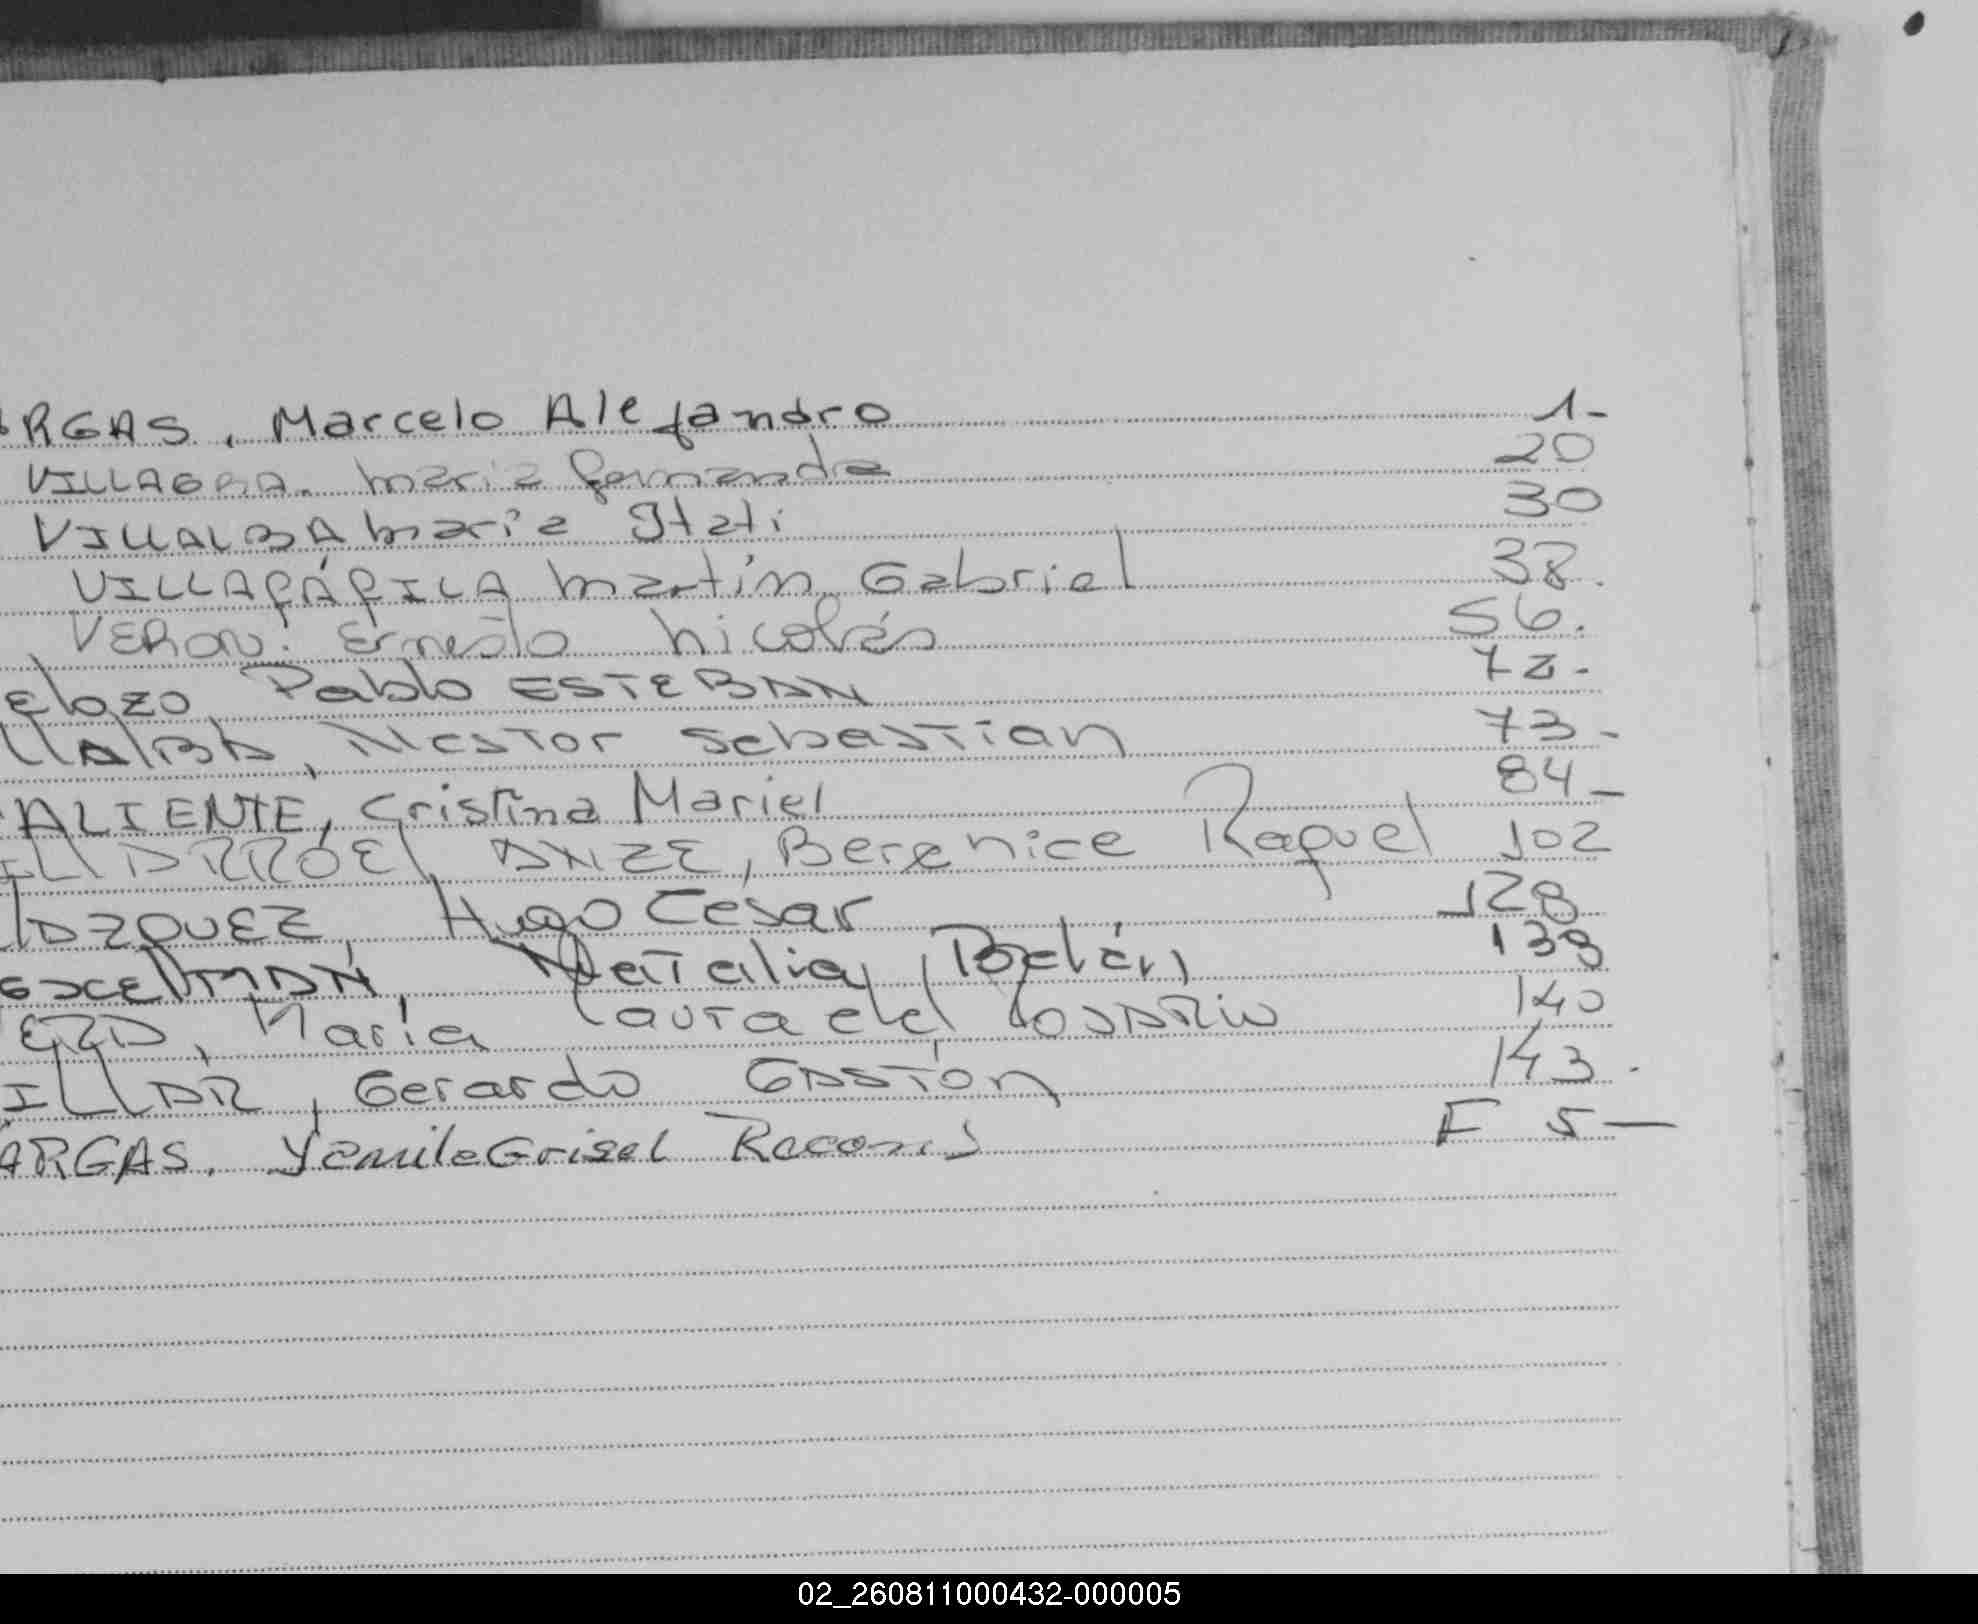 ARGAS, Marcelo Alejandro 1-
VILLAGRA. Maria fernanda 20
VILLALBA Maria Itati 30
VILLAFÁFILA Martín Gabriel 38.
VERON. Ernesto Nicolás 56.
elozo Pablo ESTEBAN 72.
LLALBA, NESTOR Sebastian 73-
VALIENTE, Cristina Mariel 84-
ILLARROEL ANZE, Berenice Raquel 102
VAZQUEZ, Hugo César 128
Natalia Belén 139
VERA, María Laura del ROSARIO 140
ILLAR, Gerardo GASTÓN 143.
ARGAS. Yamile Grisel F 5-
02_260811000432-000005